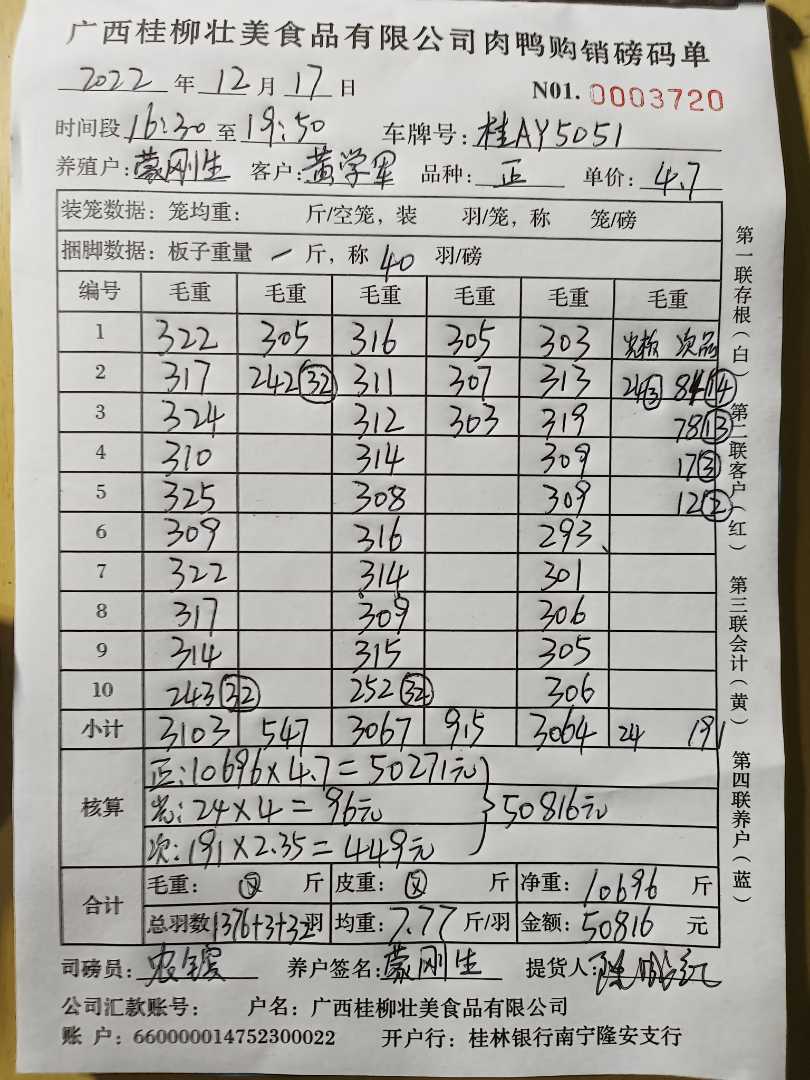 广西桂柳壮美食品有限公司肉鸭购销磅码单
2022 年 12 月 17 日 N01. 0003720
时间段 16:30 至 19:50 车牌号: 桂AY5051
养殖户: 蒙刚生 客户: 黄学军 品种: 正 单价: 4.7
装笼数据: 笼均重: 斤/空笼, 装 羽/笼, 称 笼/磅
捆脚数据: 板子重量 一 斤, 称 40 羽/磅
编号 毛重 毛重 毛重 毛重 毛重 毛重
1 322 305 316 305 303 次品
2 317 242 (32) 311 307 313 24 (3) 84 (14)
3 324 312 303 319 78 (13)
4 310 314 309 17 (3)
5 325 308 309 12 (2)
6 309 316 293、
7 322 314 301
8 317 309 306
9 314 315 305
10 243 (32) 252 (32) 306
小计 3103 547 3067 915 3064 24 191
核算
正: 10696×4.7=50271元
24×4=96元 } 50816元
次: 191×2.35=449元
合计
毛重: 斤 皮重: 斤 净重: 10696 斤
总羽数 1376+3+32 羽 均重: 7.77 斤/羽 金额: 50816 元
司磅员: 养户签名: 蒙刚生 提货人:
公司汇款账号: 户名: 广西桂柳壮美食品有限公司
账 户: 660000014752300022 开户行: 桂林银行南宁隆安支行
第一联存根(白) 第二联客户(红) 第三联会计(黄) 第四联养户(蓝)